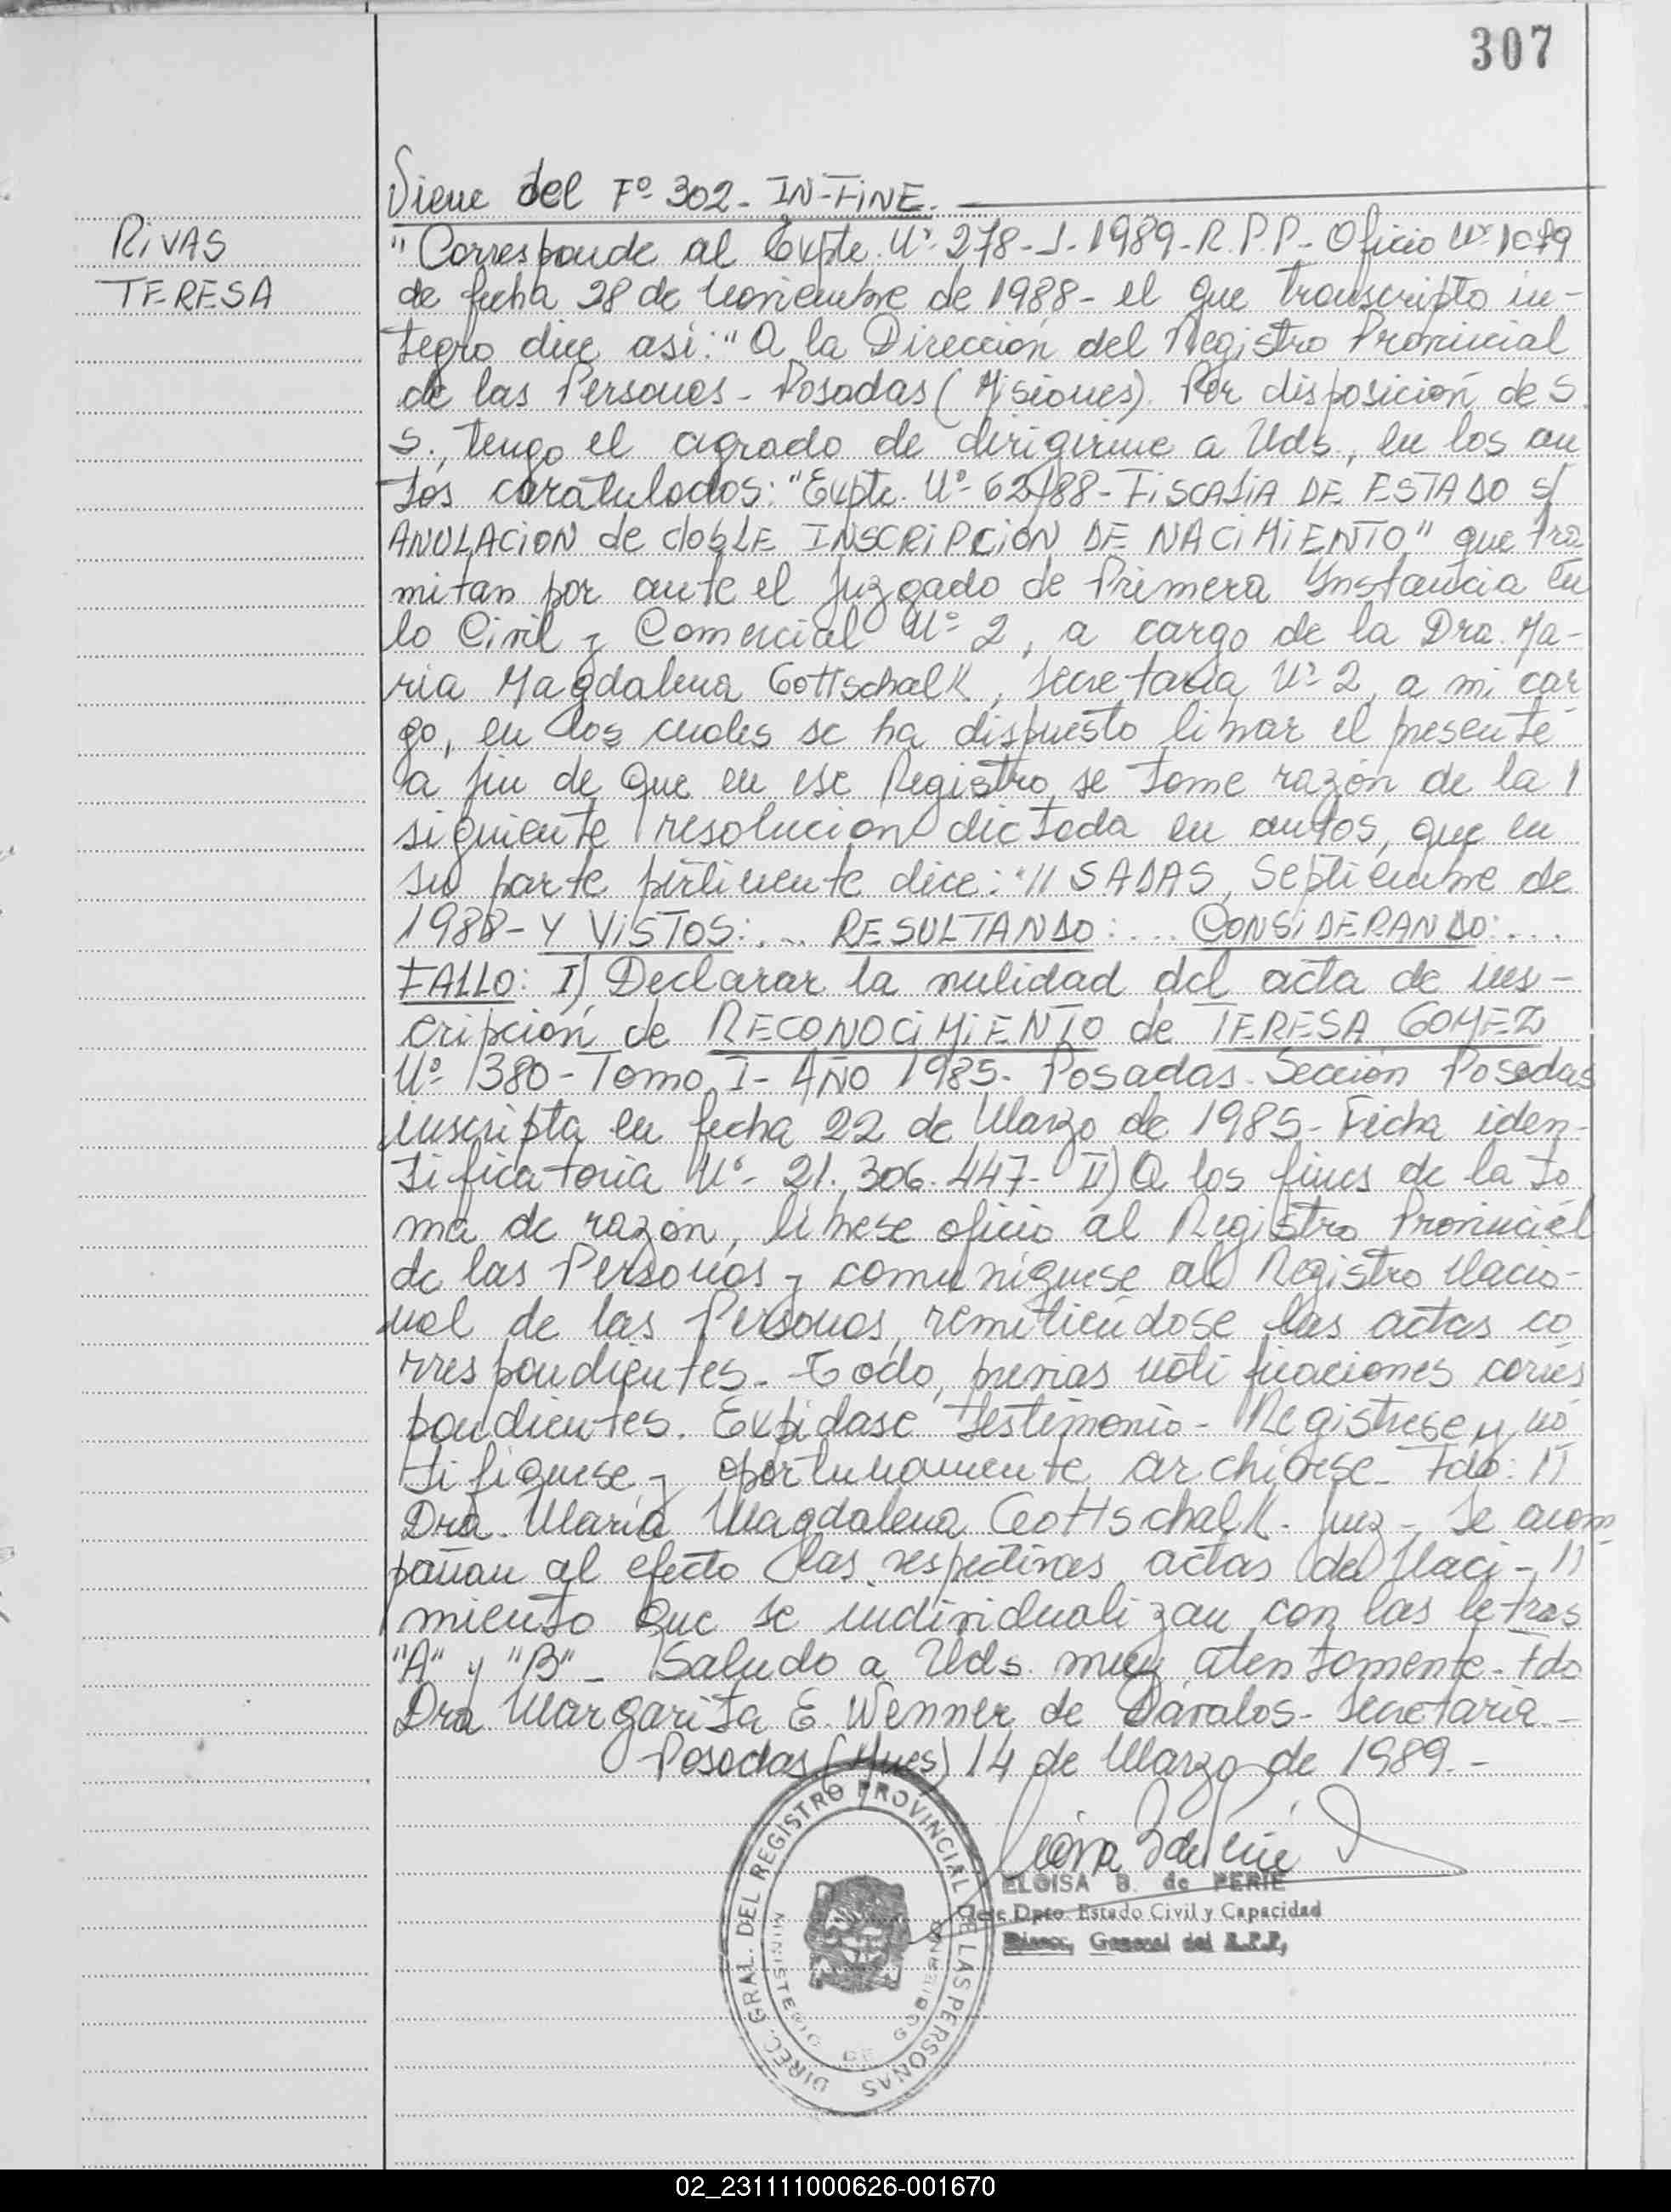 307
Viene del Fº 302- IN-FINE.
RIVAS
TERESA
"Corresponde al Expte. Nº 278-J-1989-R.P.P- Oficio Nº 1079
de fecha 28 de Noviembre de 1988- el que transcripto in-
tegro dice asi: "A la Dirección del Registro Provincial
de las Personas- Posadas (Misiones). Por disposición de S.
S., tengo el agrado de dirigirme a Uds, en los au
tos caratulados: "Expte. Nº 62/88- FISCALIA DE ESTADO s/
ANULACION de dobLE INSCRIPCION DE NACIMIENTO" que tra
mitan por ante el Juzgado de Primera Instancia en
lo Civil y Comercial Nº 2, a cargo de la Dra. Ma-
ria Magdalena Gottschalk, Secretaria Nº 2, a mi car
go, en los cuales se ha dispuesto librar el presente
a fin de que en ese Registro se tome razón de la
siguiente resolucion dictada en autos, que en
su parte pertinente dice: "//SADAS, Septiembre de
1988- Y VISTOS:... RESULTANDO:... CONSIDERANDO:...
FALLO: I) Declarar la nulidad del acta de ins-
cripción de RECONOCIMIENTO de TERESA GOMEZ
Nº 1380- Tomo I- AÑO 1985- Posadas- Sección Posadas
inscripta en fecha 22 de Marzo de 1985- Ficha iden-
tificatoria Nº- 21.306.447- II) A los fines de la to
ma de razón, librese oficio al Registro Provincial
de las Personas y comuníquese al Registro Nacio-
nal de las Personas, remitiendose las actas co
rrespondientes- Todo, previas notificaciones corres
pondientes. Expidase testimonio- Registrese y no
tifiquese y oportunamente archivese- Fdo: //
Dra. María Magdalena Gottschalk- Juez- Se acom
pañan al efecto las respectivas actas de Naci- //
miento que se individualizan con las letras
"A" y "B"- Saludo a Uds. muy atentamente- Fdo
Dra Margarita E. Wenner de Dávalos- Secretaria-
Posadas (Mnes) 14 de Marzo de 1989.-
DIREC. GRAL. DEL REGISTRO PROVINCIAL DE LAS PERSONAS
MINISTERIO DE GOBIERNO
ELOISA B. de PERIE
Jefe Dpto. Estado Civil y Capacidad
Direcc, General del R.P.P,
02_231111000626-001670